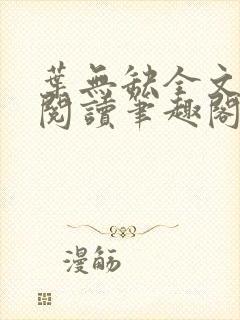 葉無缺全文
閱讀筆趣閣
漫觞